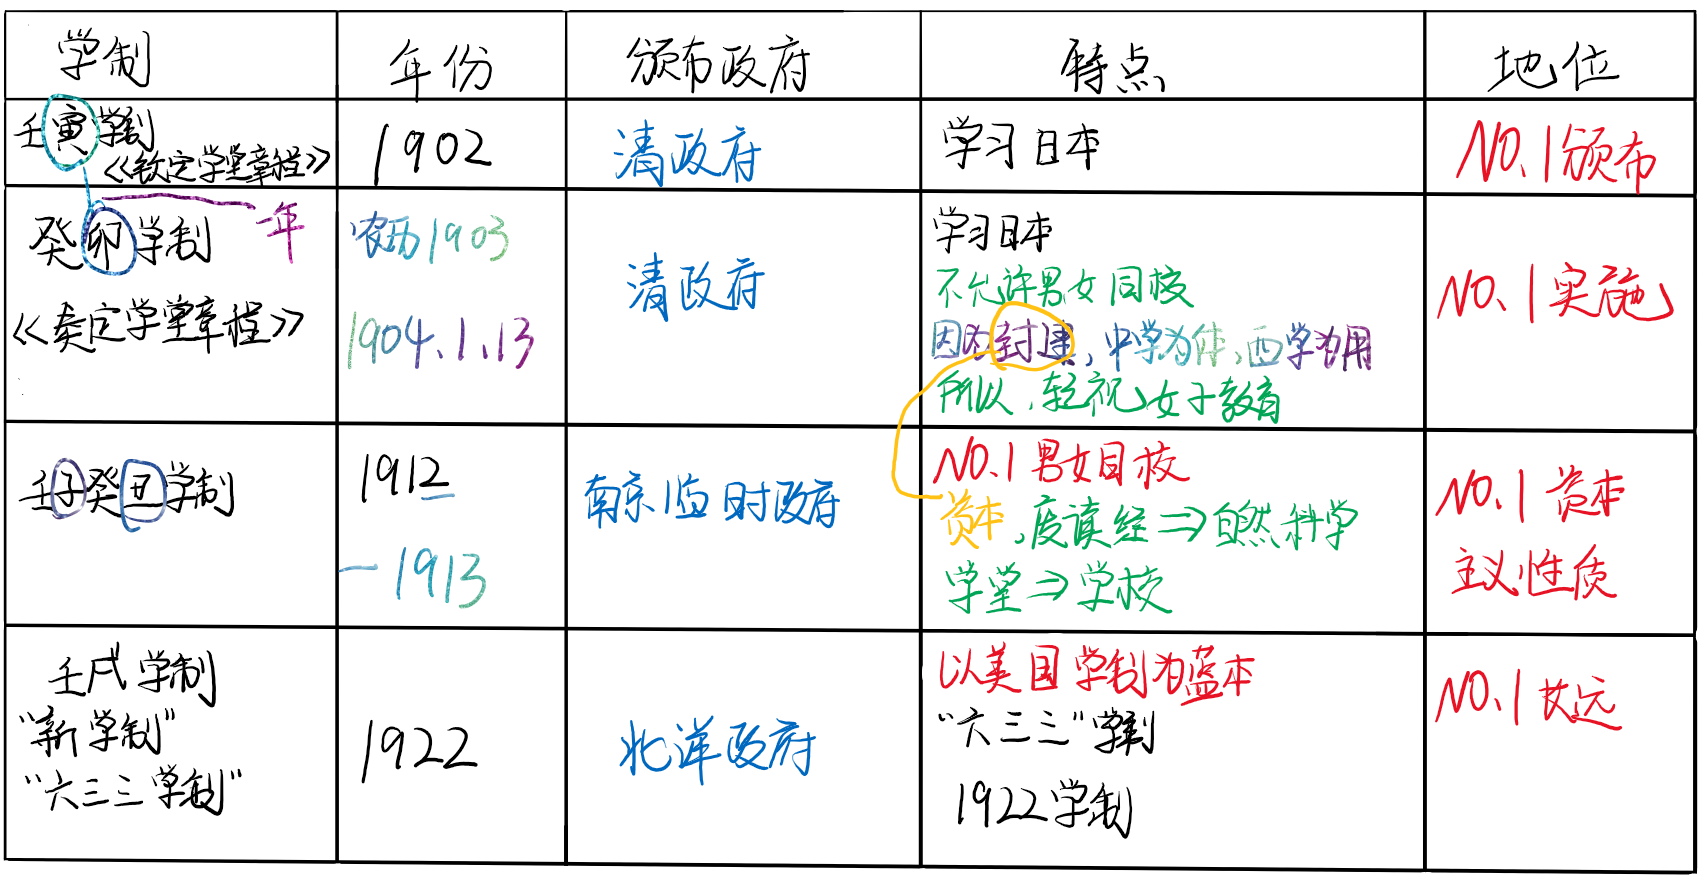 学制 年份 颁布政府 特点 地位
壬寅学制
《钦定学堂章程》
1902
清政府
学习日本
NO.1颁布
癸卯学制 一年
《奏定学堂章程》
农历1903
1904.1.13
清政府
学习日本
不允许男女同校
因为封建,中学为体,西学为用
所以,轻视女子教育
NO.1实施
壬子癸丑学制
1912
-1913
南京临时政府
NO.1男女同校
资本,废读经⇒自然科学
学堂⇒学校
NO.1资本
主义性质
壬戌学制
"新学制"
"六三三学制"
1922
北洋政府
以美国学制为蓝本
"六三三"学制
1922学制
NO.1 久远